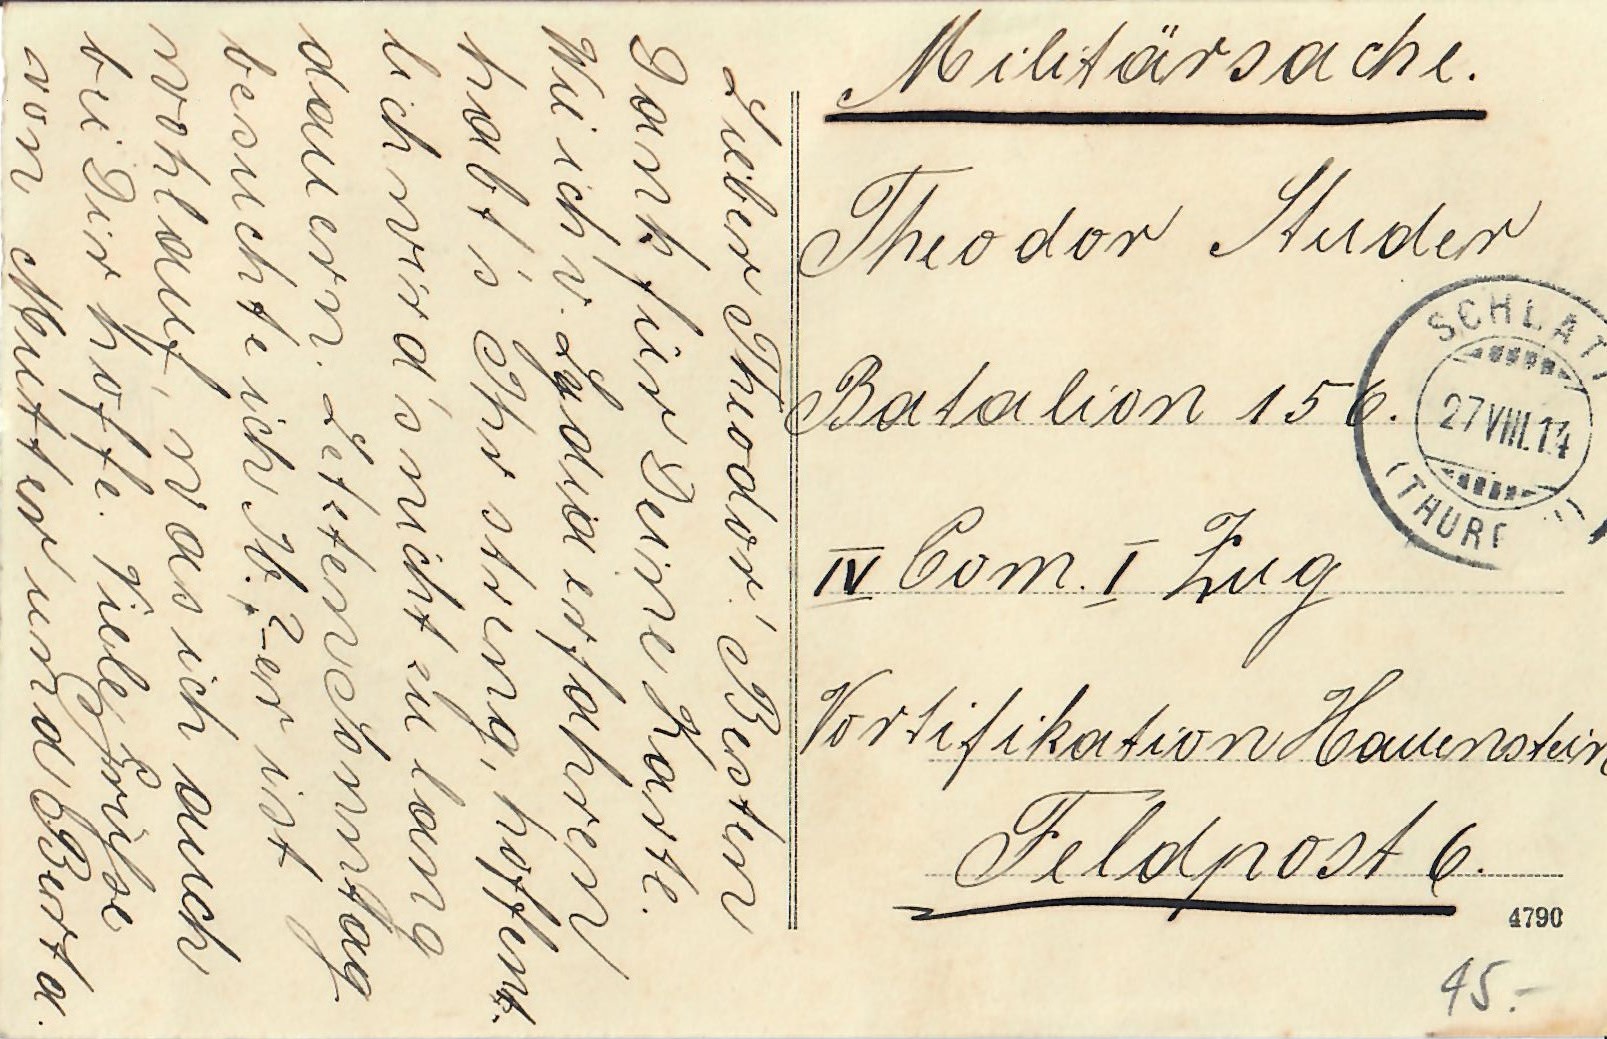 Lieber Theodor! Besten
Dank für Deine Karte.
Wie ich v. Lydia erfahren
habt's Ihr streng, hoffent-
lich wird's nicht zu lang
dauern. Letzten Sonntag
besuchte ich W. er ist
wohlauf, was ich auch
bei Dir hoffe. Viele Grüße
von Mutter und Berta.
Militärsache.
Theodor Studer
Batalion 156.
IV Com. I Zug
Vortifikation Hauenstein
Feldpost 6.
SCHLATT
27 VIII.14
(THUR
4790
45.-